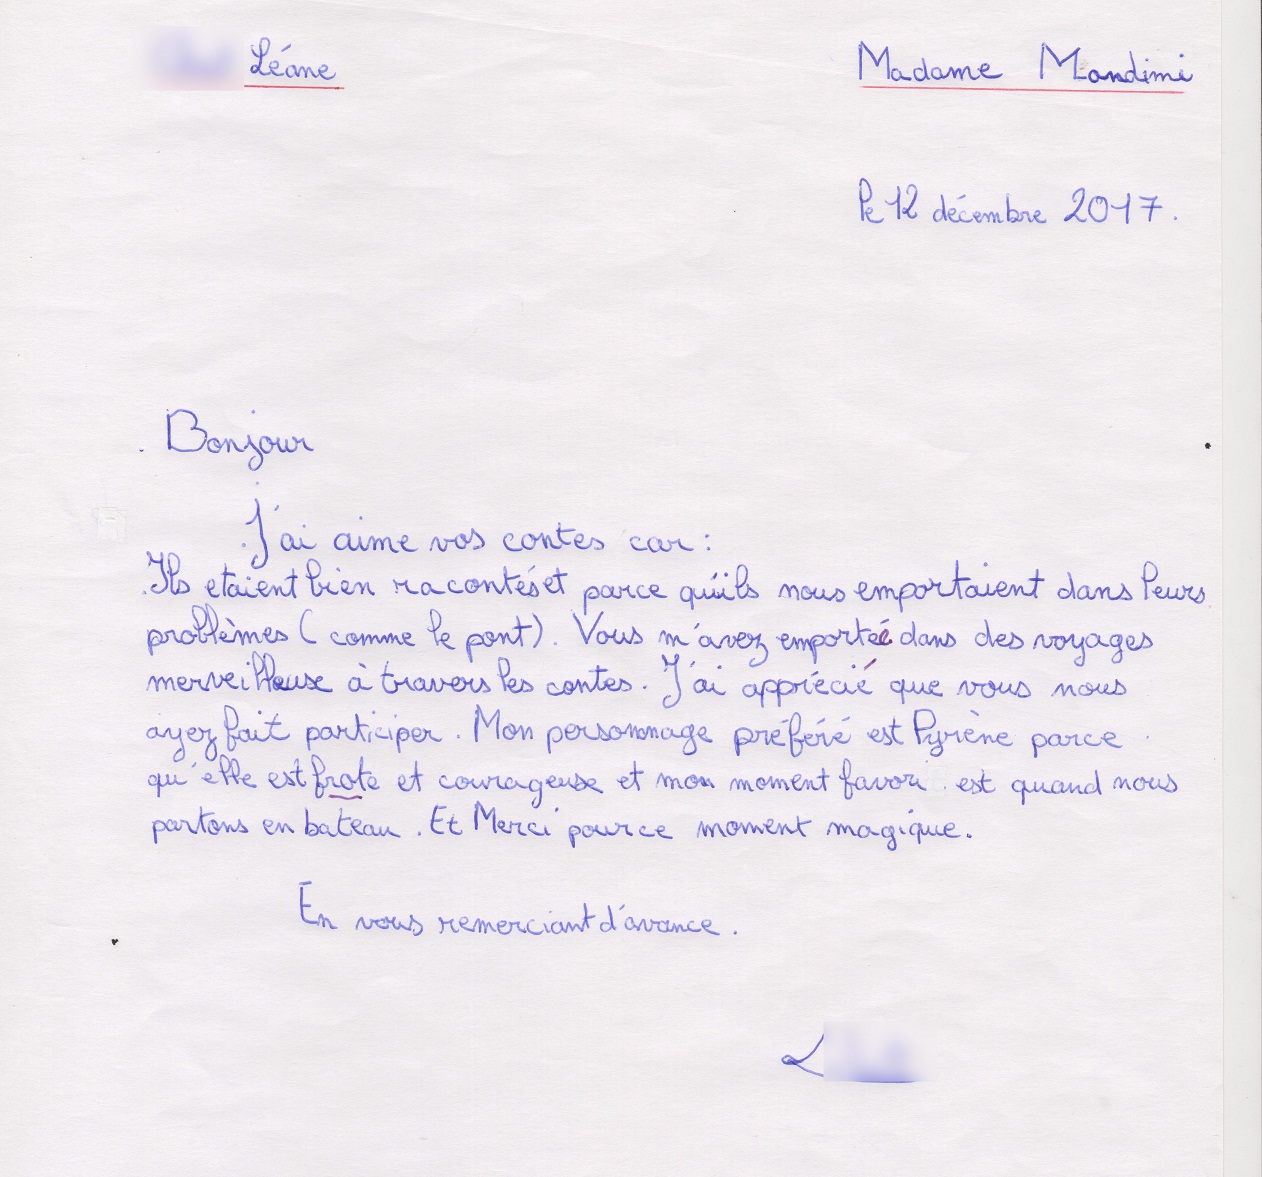 Léane Madame Mandimi
le 12 décembre 2017.
Bonjour
J'ai aime vos contes car :
Ils etaient bien racontés et parce qu'ils nous emportaient dans leurs
problèmes ( comme le pont ). Vous m'avez emporté dans des voyages
merveilleuse à travers les contes. J'ai apprécié que vous nous
ayez fait participer. Mon personnage préféré est Pyrène parce
qu'elle est frote et courageuse et mon moment favori est quand nous
partons en bateau. Et Merci pour ce moment magique.
En vous remerciant d'avance.
L